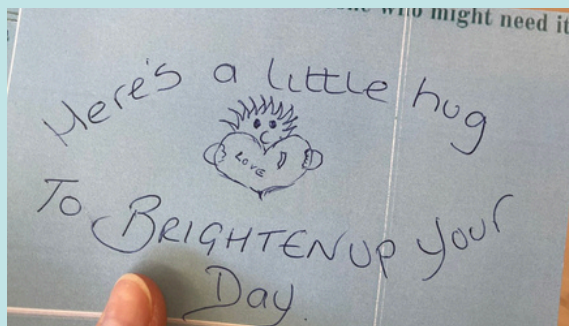 who might need it
Here's a little hug
LOVE
To BRIGHTEN UP your
Day.